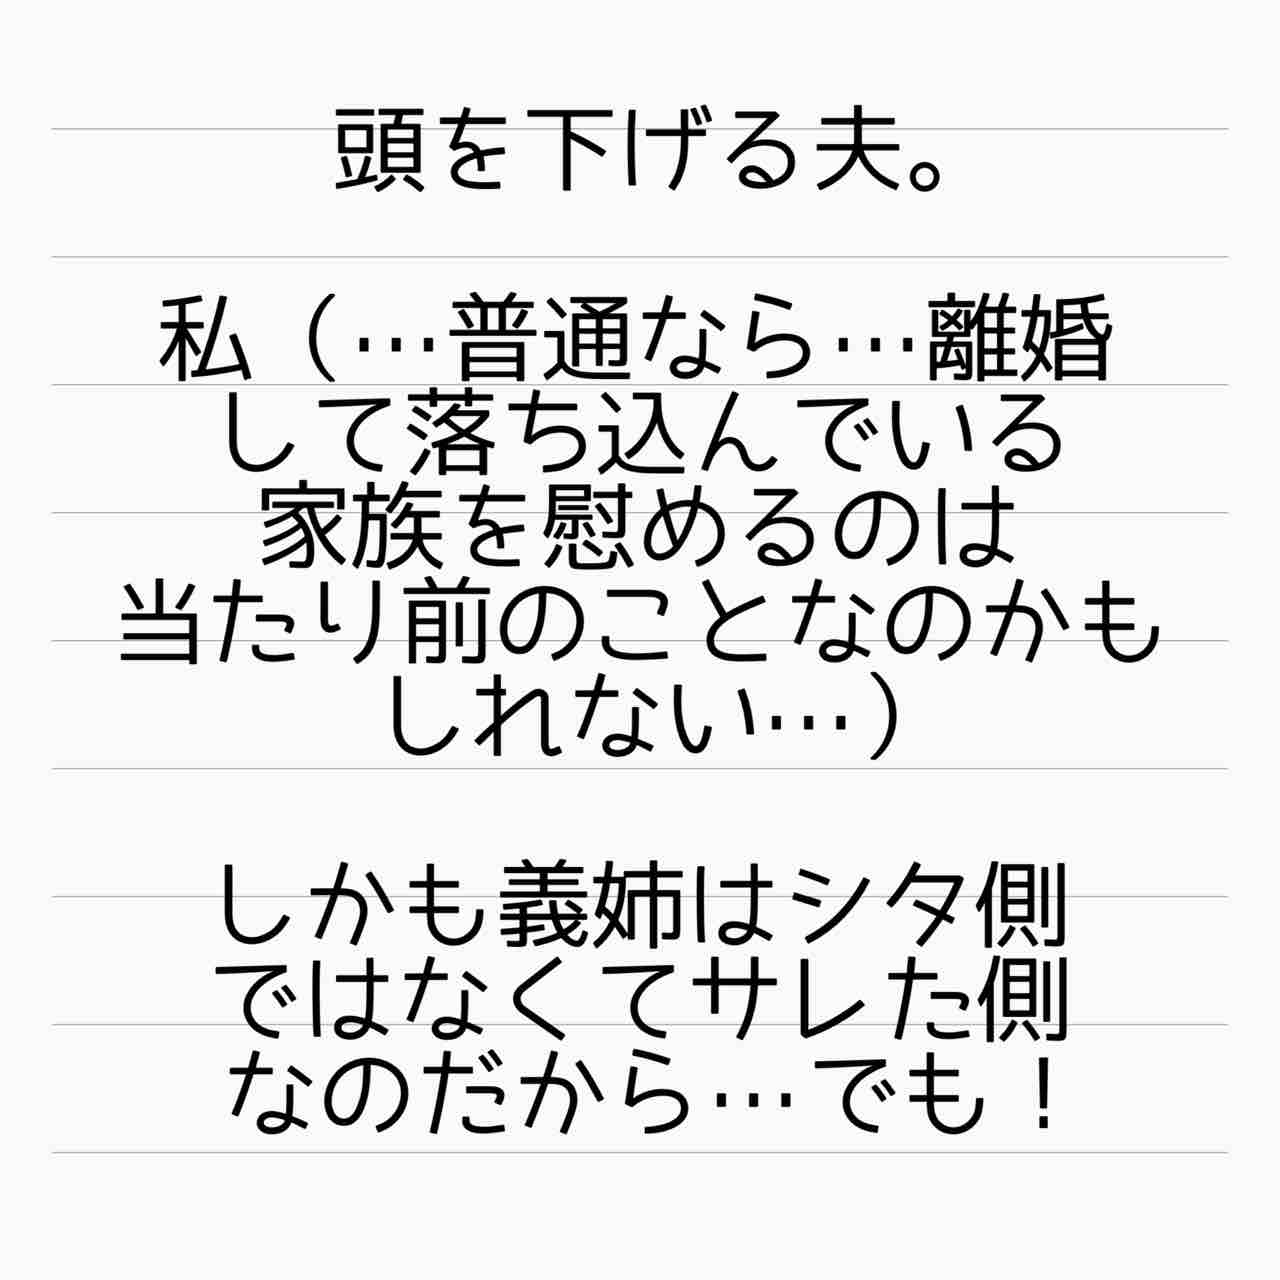 頭を下げる夫。
私（…普通なら…離婚
して落ち込んでいる
家族を慰めるのは
当たり前のことなのかも
しれない…）
しかも義姉はシタ側
ではなくてサレた側
なのだから…でも！